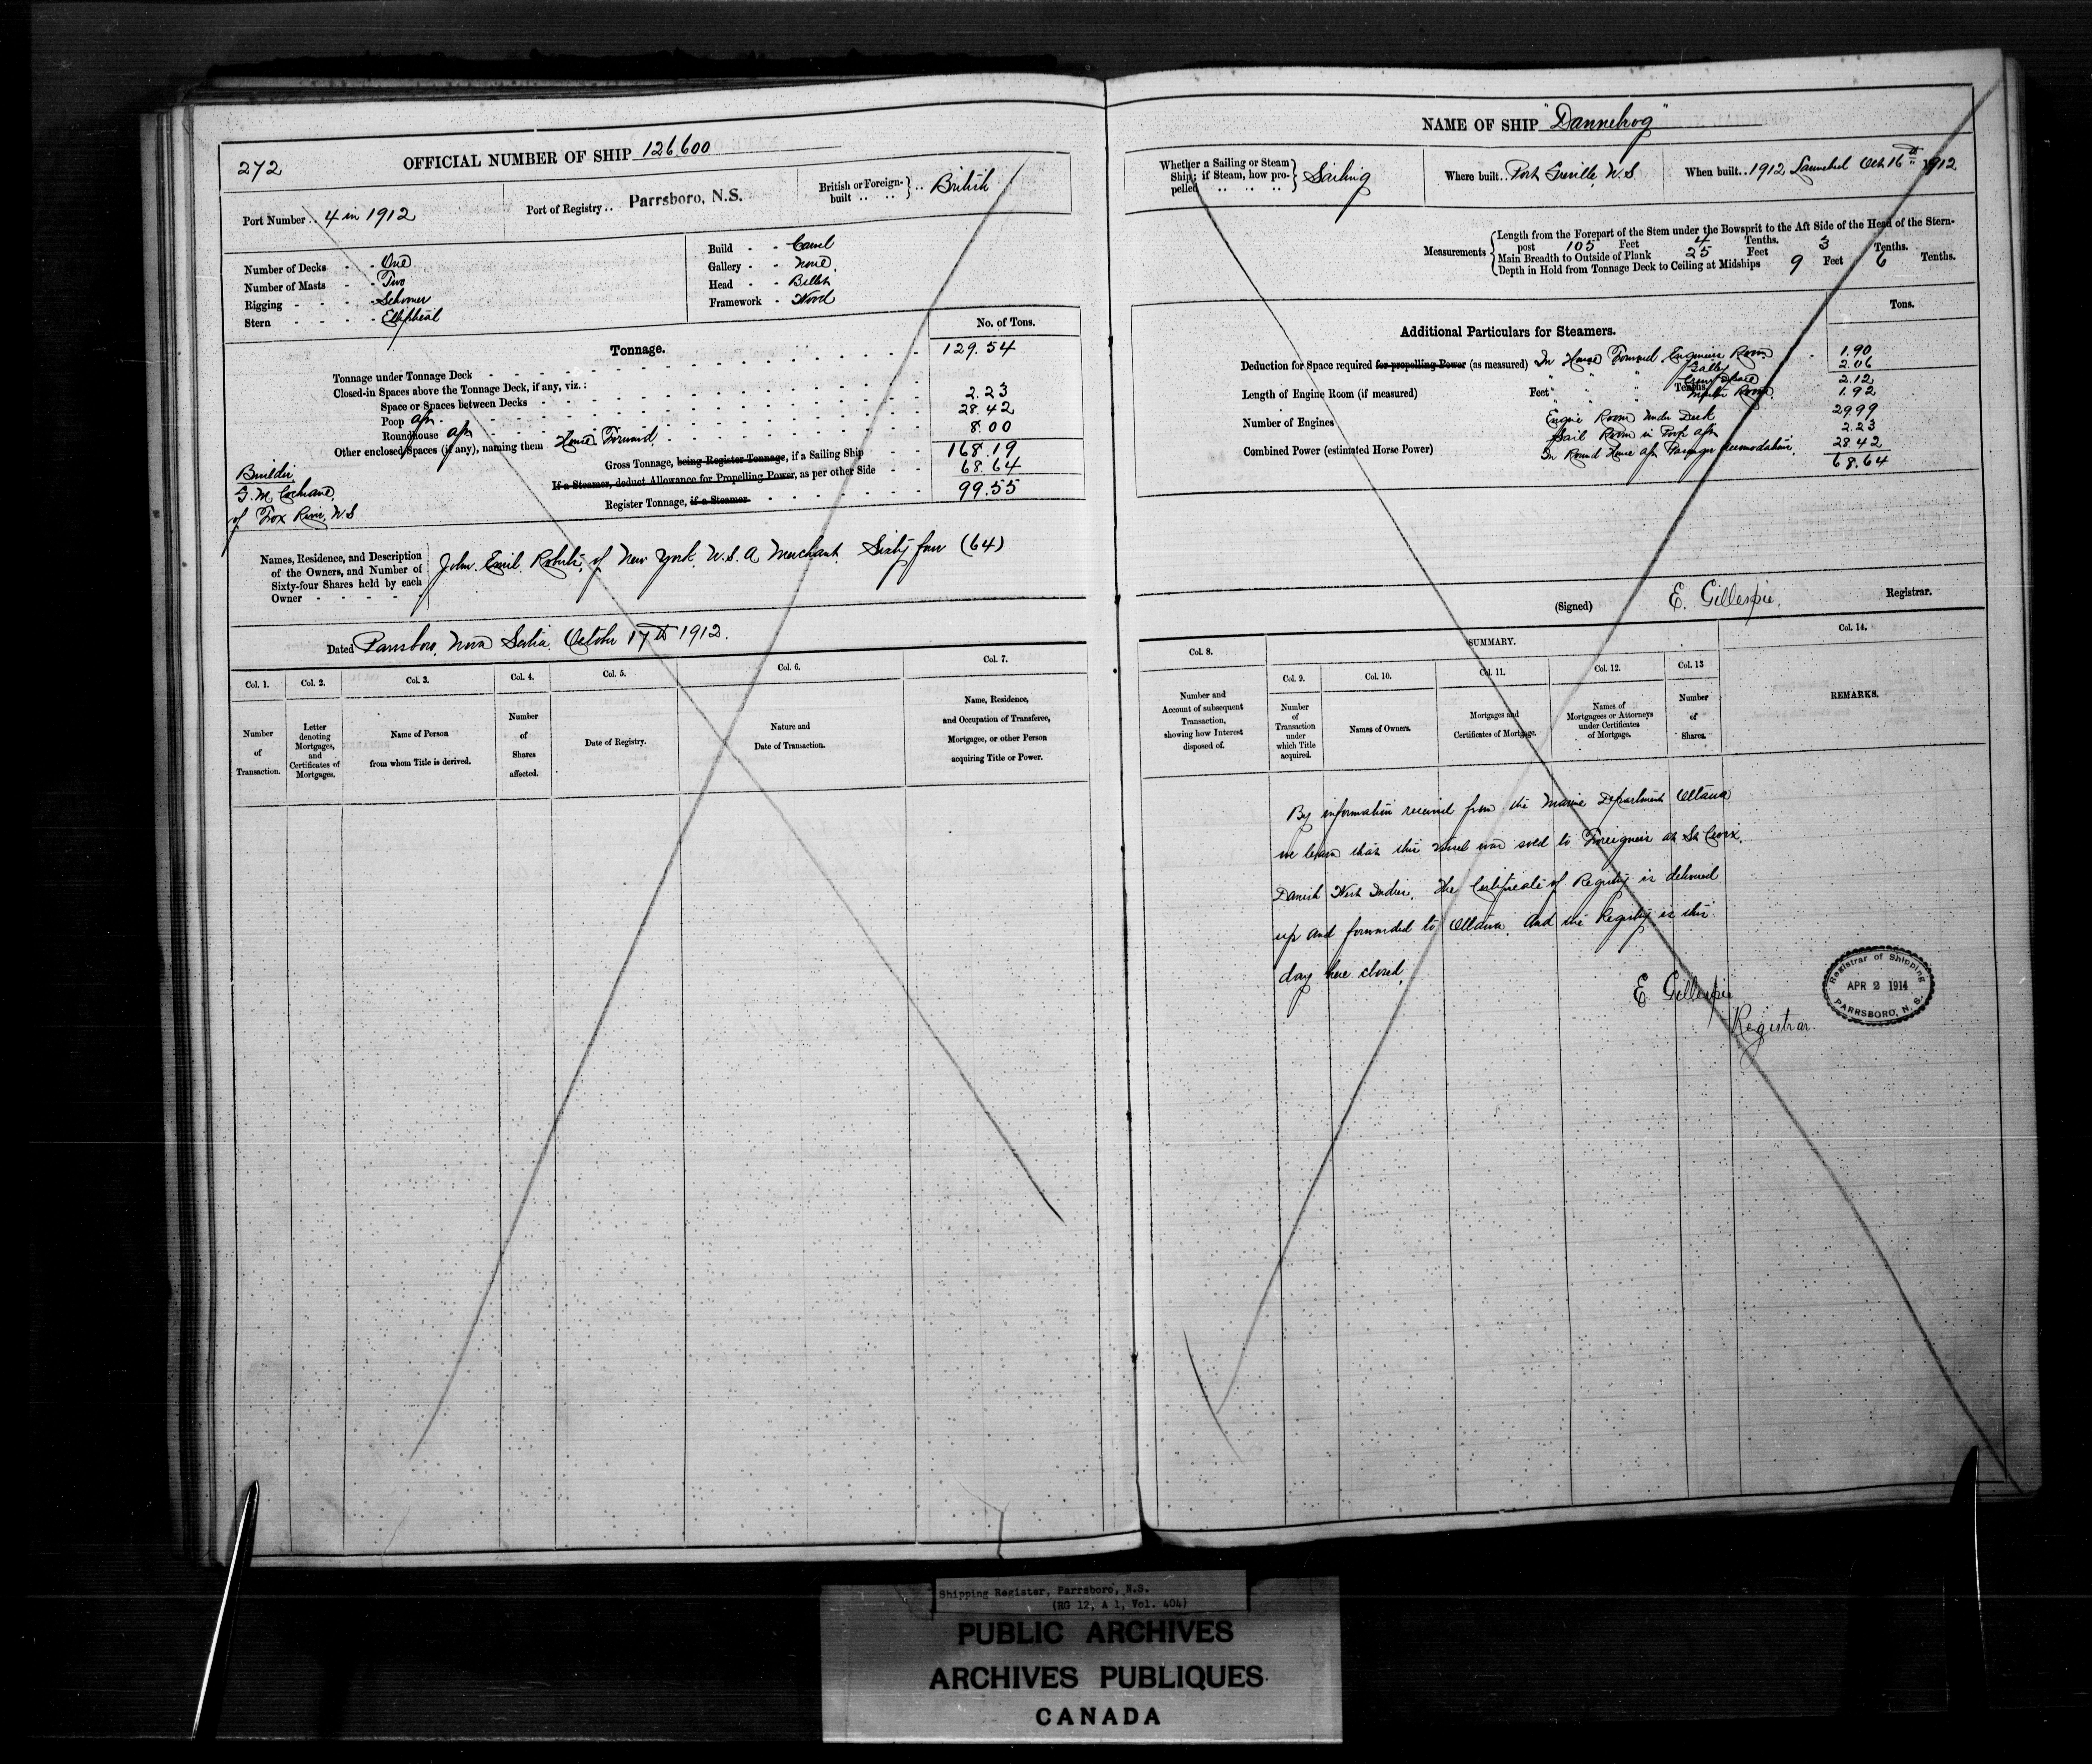 272
OFFICIAL NUMBER OF SHIP 126,600
Port Number .. 4 in 1912
Port of Registry .. Parrsboro, N.S.
British or Foreign-built .. British
Number of Decks - - One
Number of Masts - - Two
Rigging - - - - Schooner
Stern - - - - Elliptical
Build - - Carvel
Gallery - - None
Head - - Billet
Framework - Wood
No. of Tons.
Tonnage.
Tonnage under Tonnage Deck 129.54
Closed-in Spaces above the Tonnage Deck, if any, viz.:
Space or Spaces between Decks
Poop aft 2.23
Roundhouse aft 28.42
Other enclosed Spaces (if any), naming them House Forward 8.00
Gross Tonnage, being Register Tonnage, if a Sailing Ship 168.19
If a Steamer, deduct Allowance for Propelling Power, as per other Side 68.64
Register Tonnage, if a Steamer 99.55
Builder
G. M. Cochrane,
of Fox River, N.S
Names, Residence, and Description
of the Owners, and Number of
Sixty-four Shares held by each
Owner - - - - -
John Emil Roberts, of New York, U.S.A Merchant. Sixty four (64)
Dated Parrsboro, Nova Scotia, October 17th 1912.
Col. 1.
Number
of
Transaction.
Col. 2.
Letter
denoting
Mortgages,
and
Certificates of
Mortgages.
Col. 3.
Name of Person
from whom Title is derived.
Col. 4.
Number
of
Shares
affected.
Col. 5.
Date of Registry.
Col. 6.
Nature and
Date of Transaction.
Col. 7.
Name, Residence,
and Occupation of Transferee,
Mortgagee, or other Person
acquiring Title or Power.
NAME OF SHIP "Dannebrog"
Whether a Sailing or Steam
Ship; if Steam, how pro-
pelled .. .. .. Sailing
Where built .. Port Greville, N.S
When built .. 1912 Launched Oct 16th 1912
Measurements
Length from the Forepart of the Stem under the Bowsprit to the Aft Side of the Head of the Stern-
post 105 Feet 4 Tenths.
Main Breadth to Outside of Plank 25 Feet 3 Tenths.
Depth in Hold from Tonnage Deck to Ceiling at Midships 9 Feet 6 Tenths.
Tons.
Additional Particulars for Steamers.
Deduction for Space required for propelling Power (as measured) In House Forward Engineers Room 1.90
" " " Galley 2.06
Length of Engine Room (if measured) Feet Tenths
" " " Crew Space 2.12
" " " Master Room 1.92
Number of Engines
Engine Room under Deck 29.99
Sail Room in Poop aft 2.23
Combined Power (estimated Horse Power)
In Round House aft Passenger accomodation. 28.42
68.64
(Signed) E. Gillespie, Registrar.
SUMMARY.
Col. 8.
Number and
Account of subsequent
Transaction,
showing how Interest
disposed of.
Col. 9.
Number
of
Transaction
under
which Title
acquired.
Col. 10.
Names of Owners.
Col. 11.
Mortgages and
Certificates of Mortgage.
Col. 12.
Names of
Mortgagees or Attorneys
under Certificates
of Mortgage.
Col. 13
Number
of
Shares.
Col. 14.
REMARKS.
By information received from the Marine Department Ottawa
we learn that this vessel was sold to Foreigners at St Croix,
Danish West Indies. The Certificate of Registry is delivered
up and forwarded to Ottawa. And the Registry is this
day here closed,
E Gillespie
Registrar.
Registrar of Shipping
APR 2 1914
PARRSBORO, N.S.
Shipping Register, Parrsboro, N.S.
(RG 12, A 1, Vol. 404)
PUBLIC ARCHIVES
ARCHIVES PUBLIQUES
CANADA